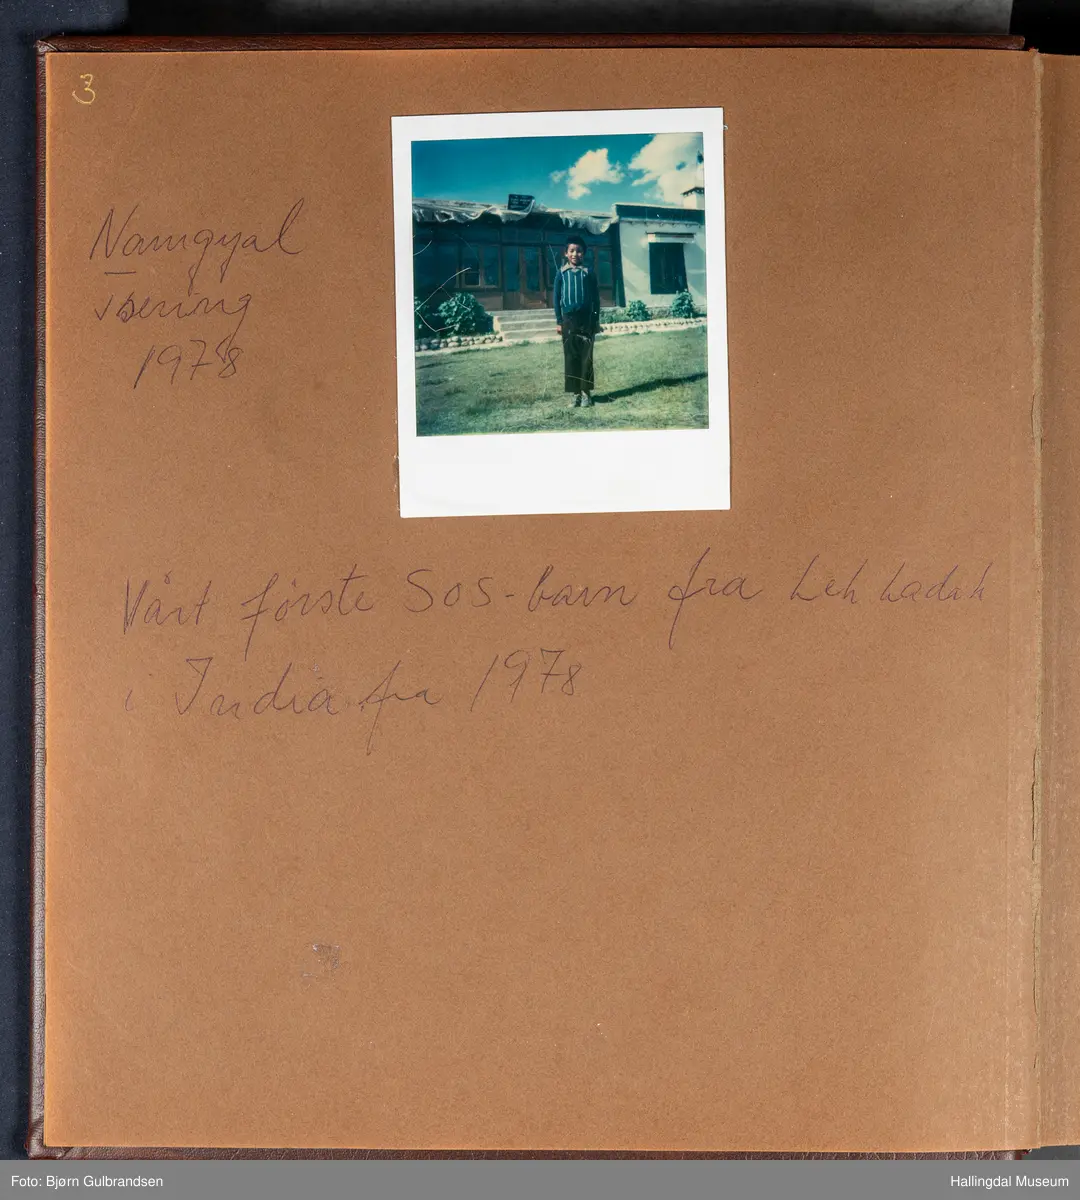 3
Namgyal
Tsering
1978
Vårt første SOS-barn fra Leh Ladak
i India fra 1978
Foto: Bjørn Gulbrandsen
Hallingdal Museum